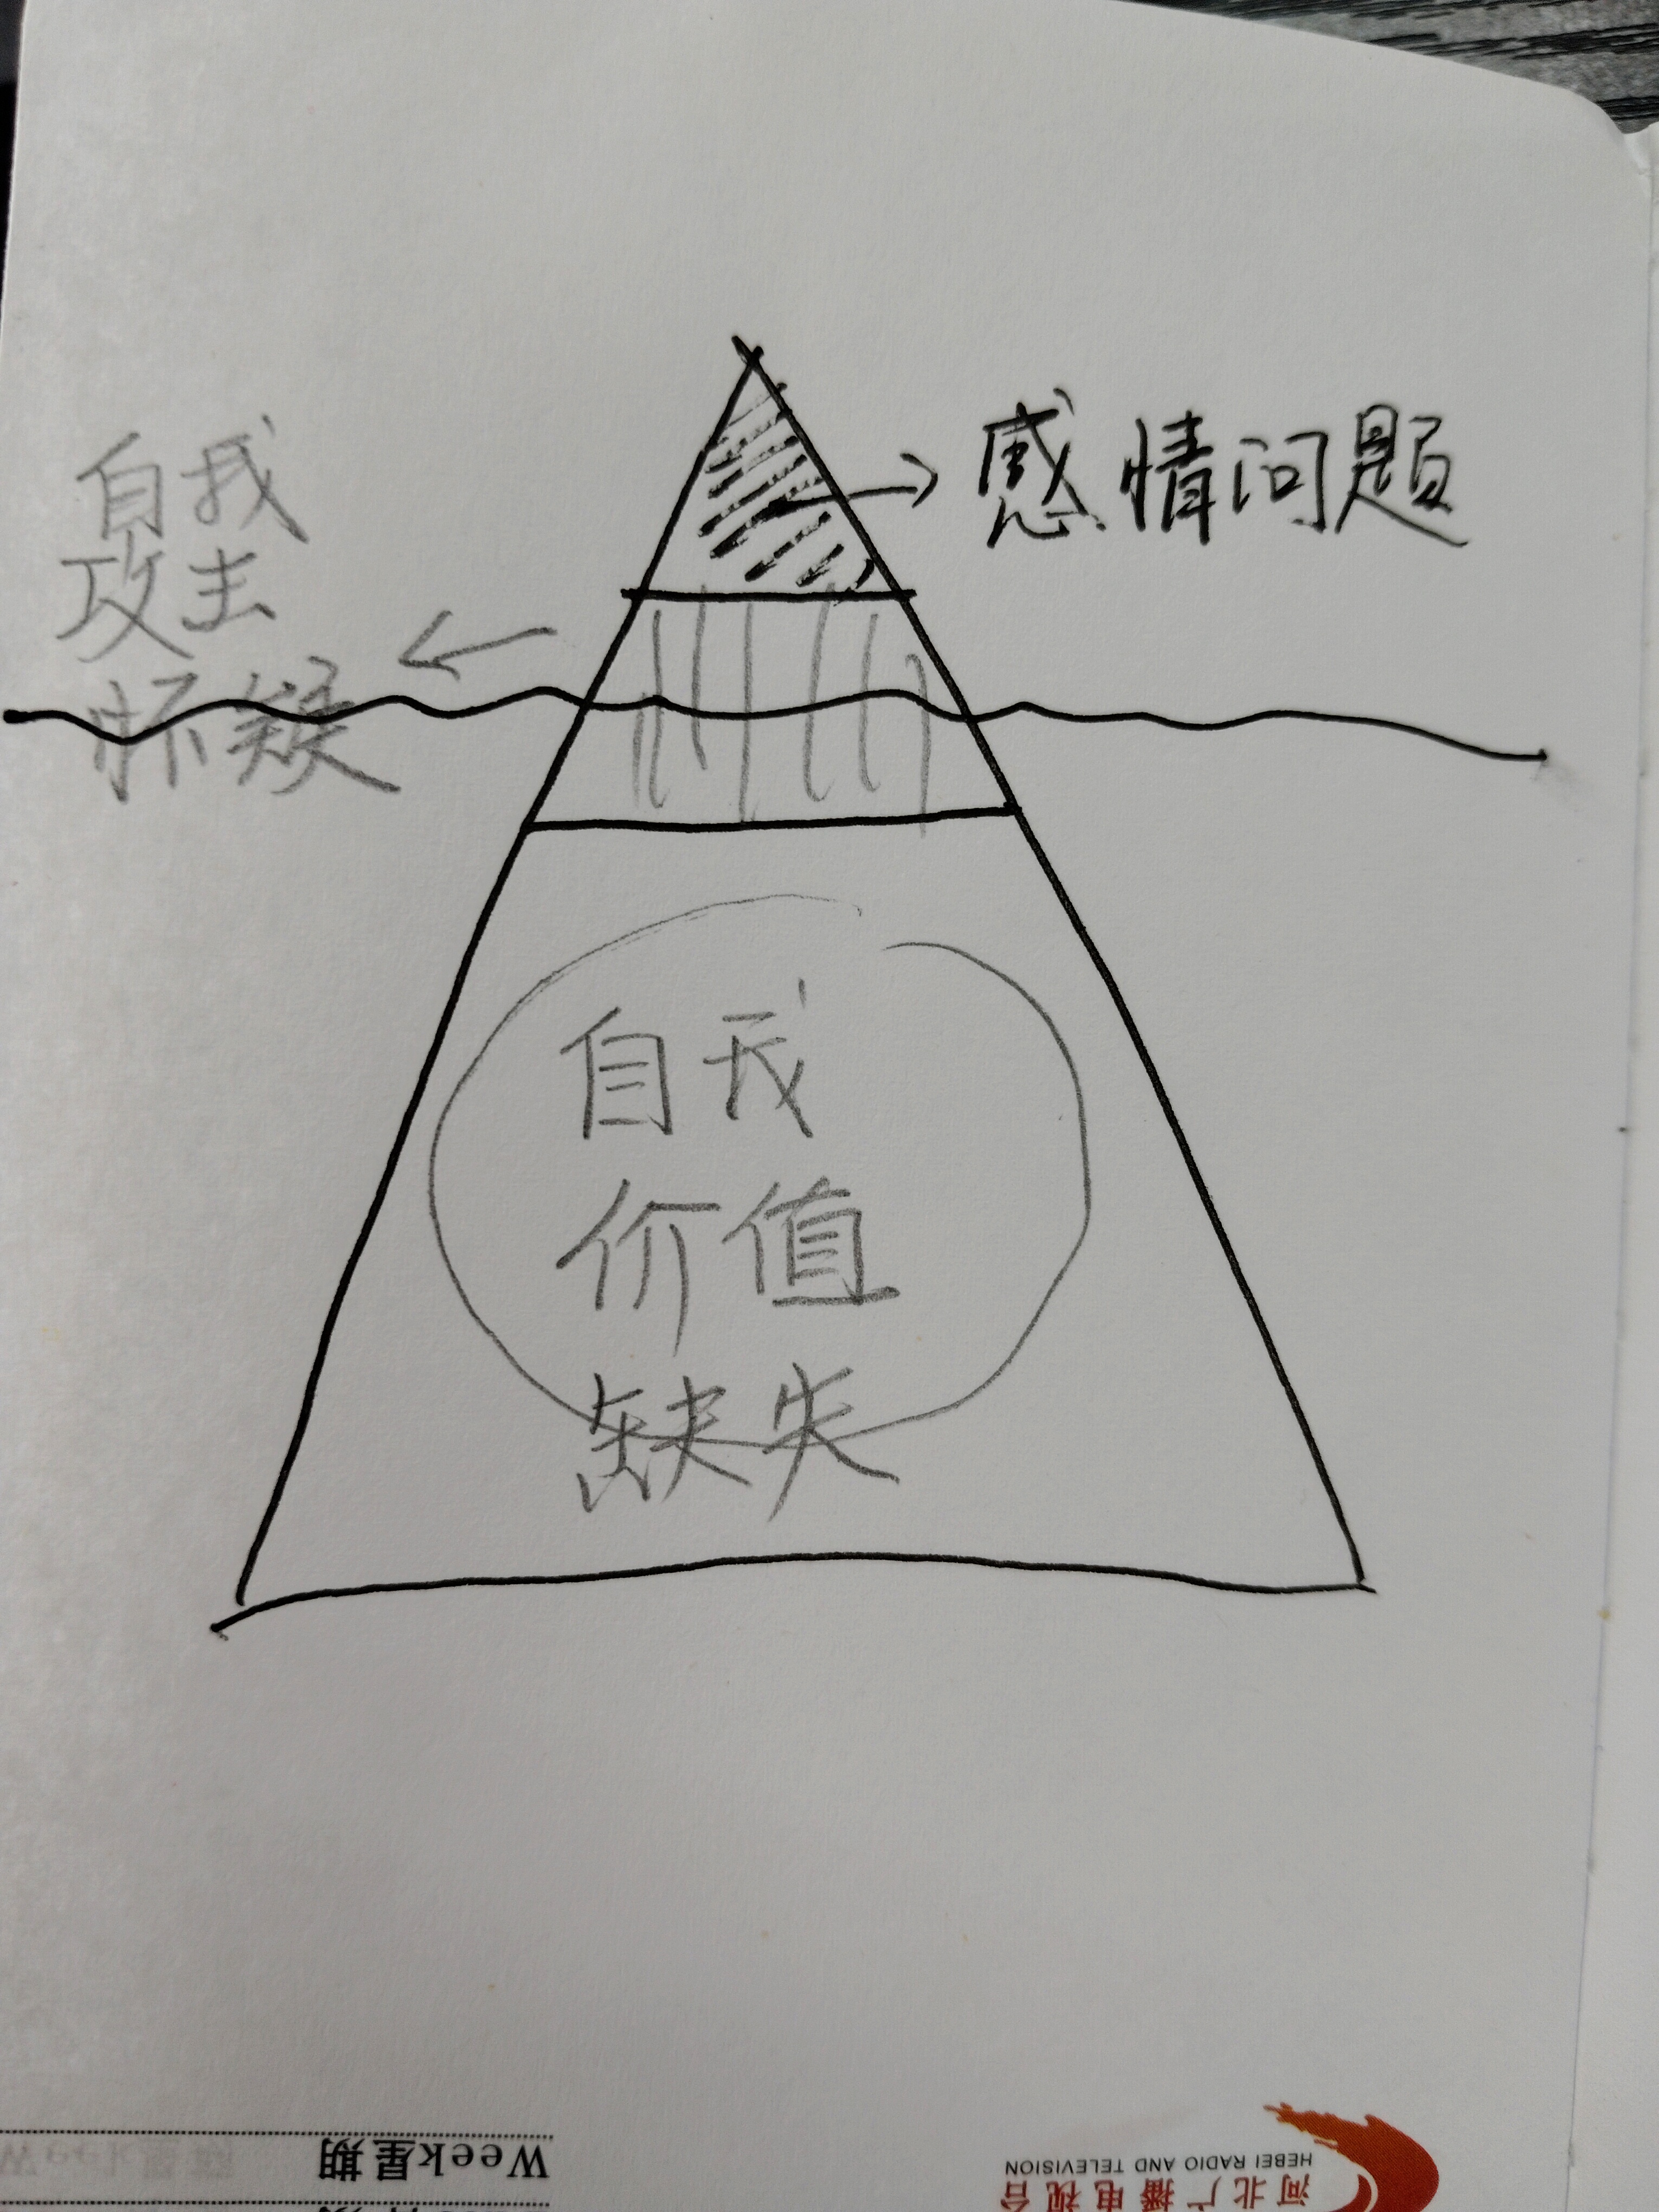 感情问题
自我
攻击
怀疑
自我
价值
缺失
Week星期
HEBEI RADIO AND TELEVISION
河北广播电视台